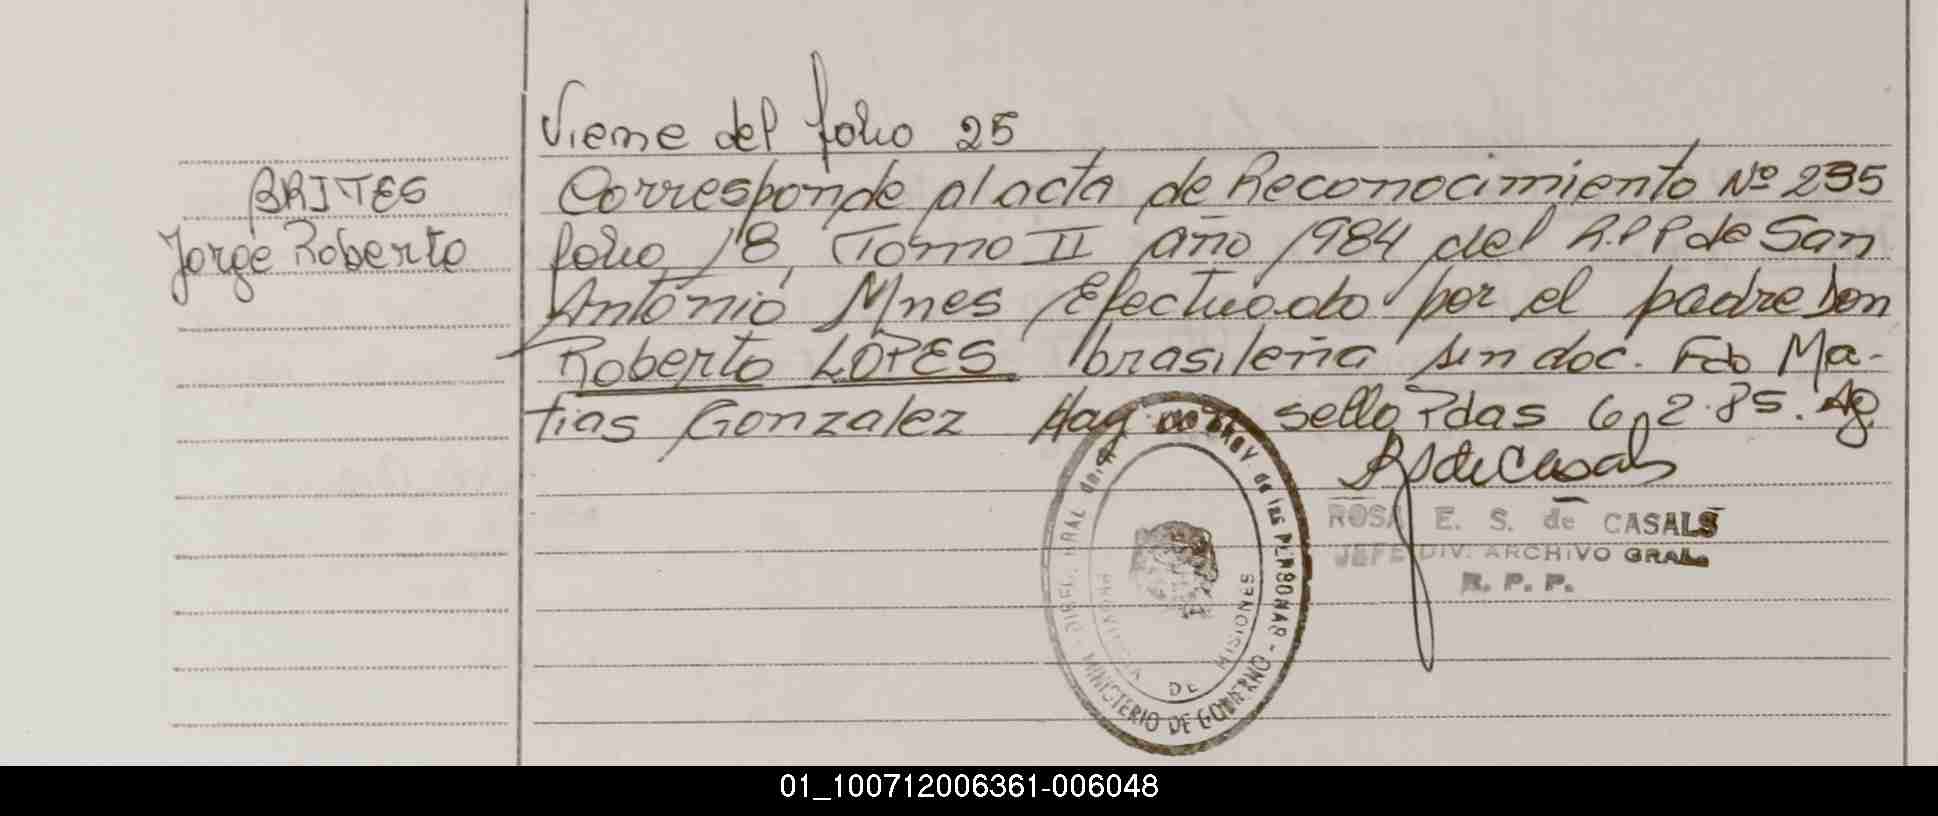 Viene del folio 25
BRITES
Jorge Roberto
Corresponde al acta de Reconocimiento Nº 235
folio 18 Tomo II año 1984 del R.P.P de San
Antonio Mnes Efectuado por el padre Don
Roberto LOPES brasileña sin doc. Fdo Ma-
tias Gonzalez Hay un sello Pdas 6.2.85. Ag.
RSdeCasals
ROSA E. S. de CASALS
JEFE DIV. ARCHIVO GRAL.
R. P. P.
DIREC. GRAL de las PERSONAS
MINISTERIO DE GOBIERNO
PROVINCIA DE MISIONES
01_100712006361-006048